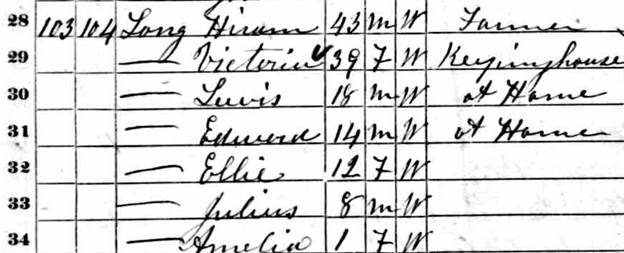 28 103 104 Long Hiram 43 m W Farmer
29 — Victoria 39 F W Keeping house
30 — Lewis 18 m W at Home
31 — Edward 14 m W at Home
32 — Ellie 12 F W
33 — Julius 8 m W
34 — Amelia 1 F W